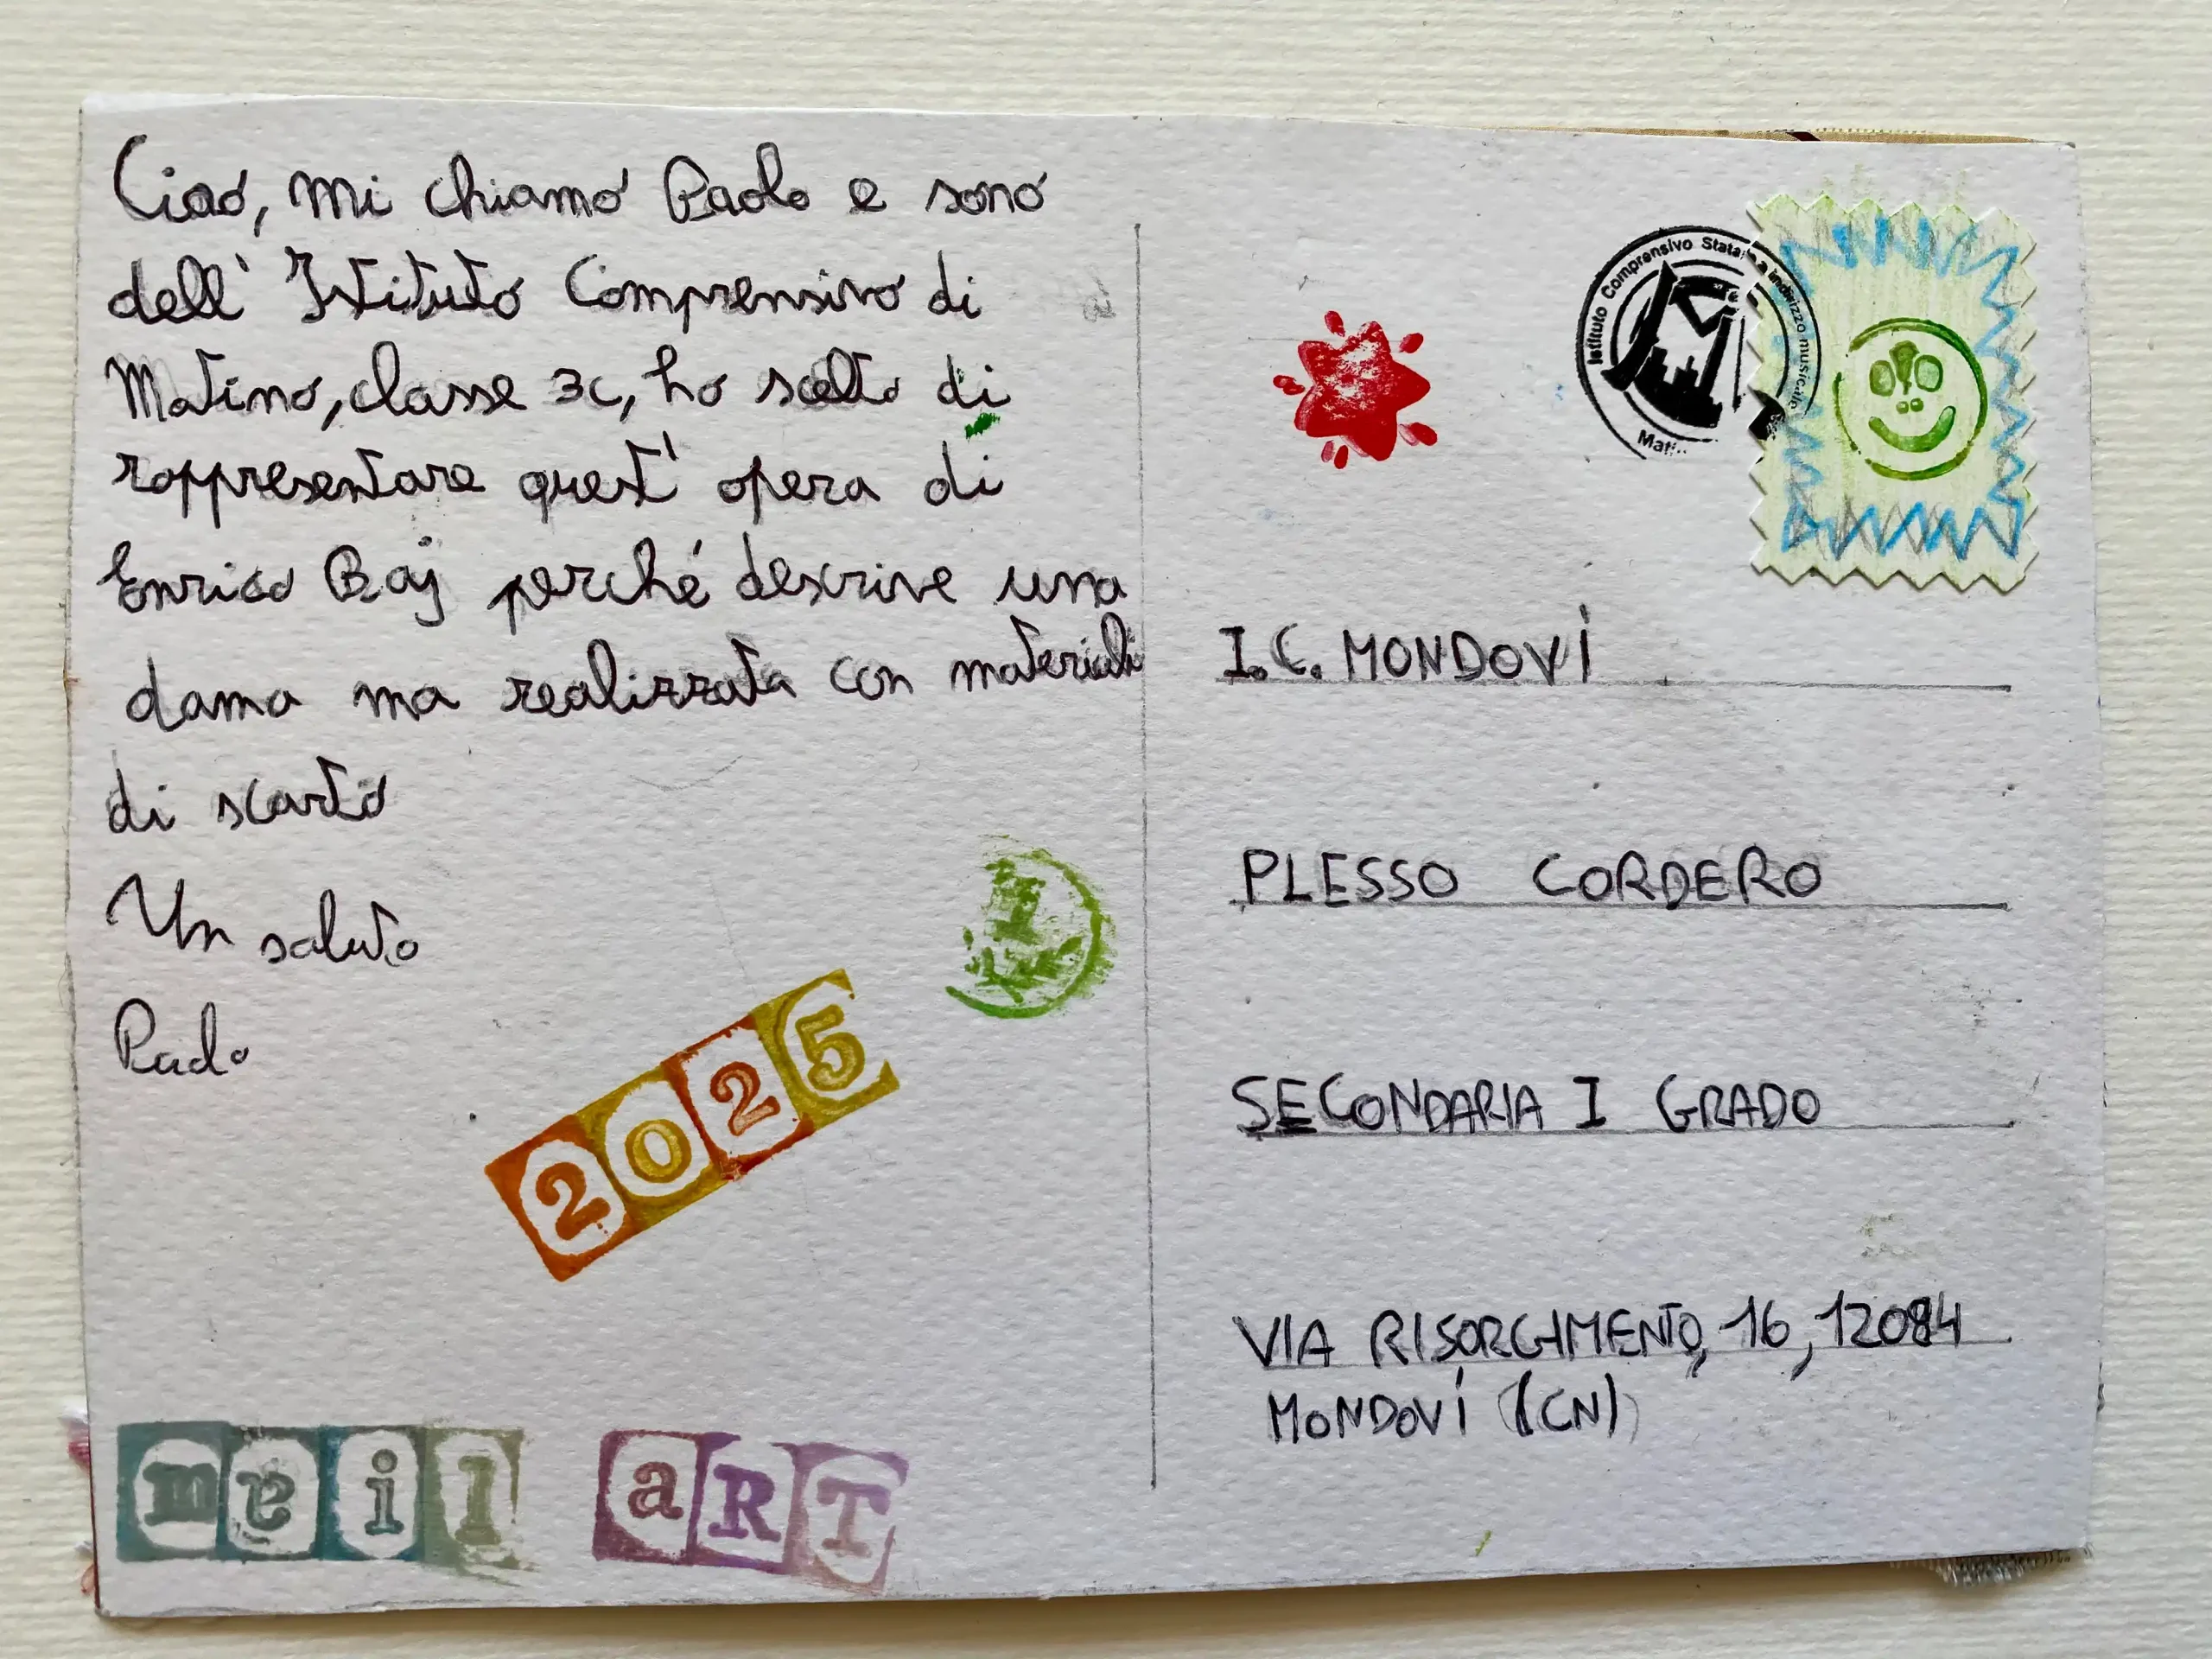 Ciao, mi chiamo Paolo e sono
dell' Istituto Comprensivo di
Matino, classe 3C, ho scelto di
rappresentare quest' opera di
Enrico Baj perché descrive una
dama ma realizzata con materiali
di scarto
Un saluto
Paolo
2025
mail aRT
Istituto Comprensivo Statale a indirizzo musicale
I.C. MONDOVÌ
PLESSO CORDERO
SECONDARIA I GRADO
VIA RISORGIMENTO, 16, 12084
MONDOVÍ (CN)